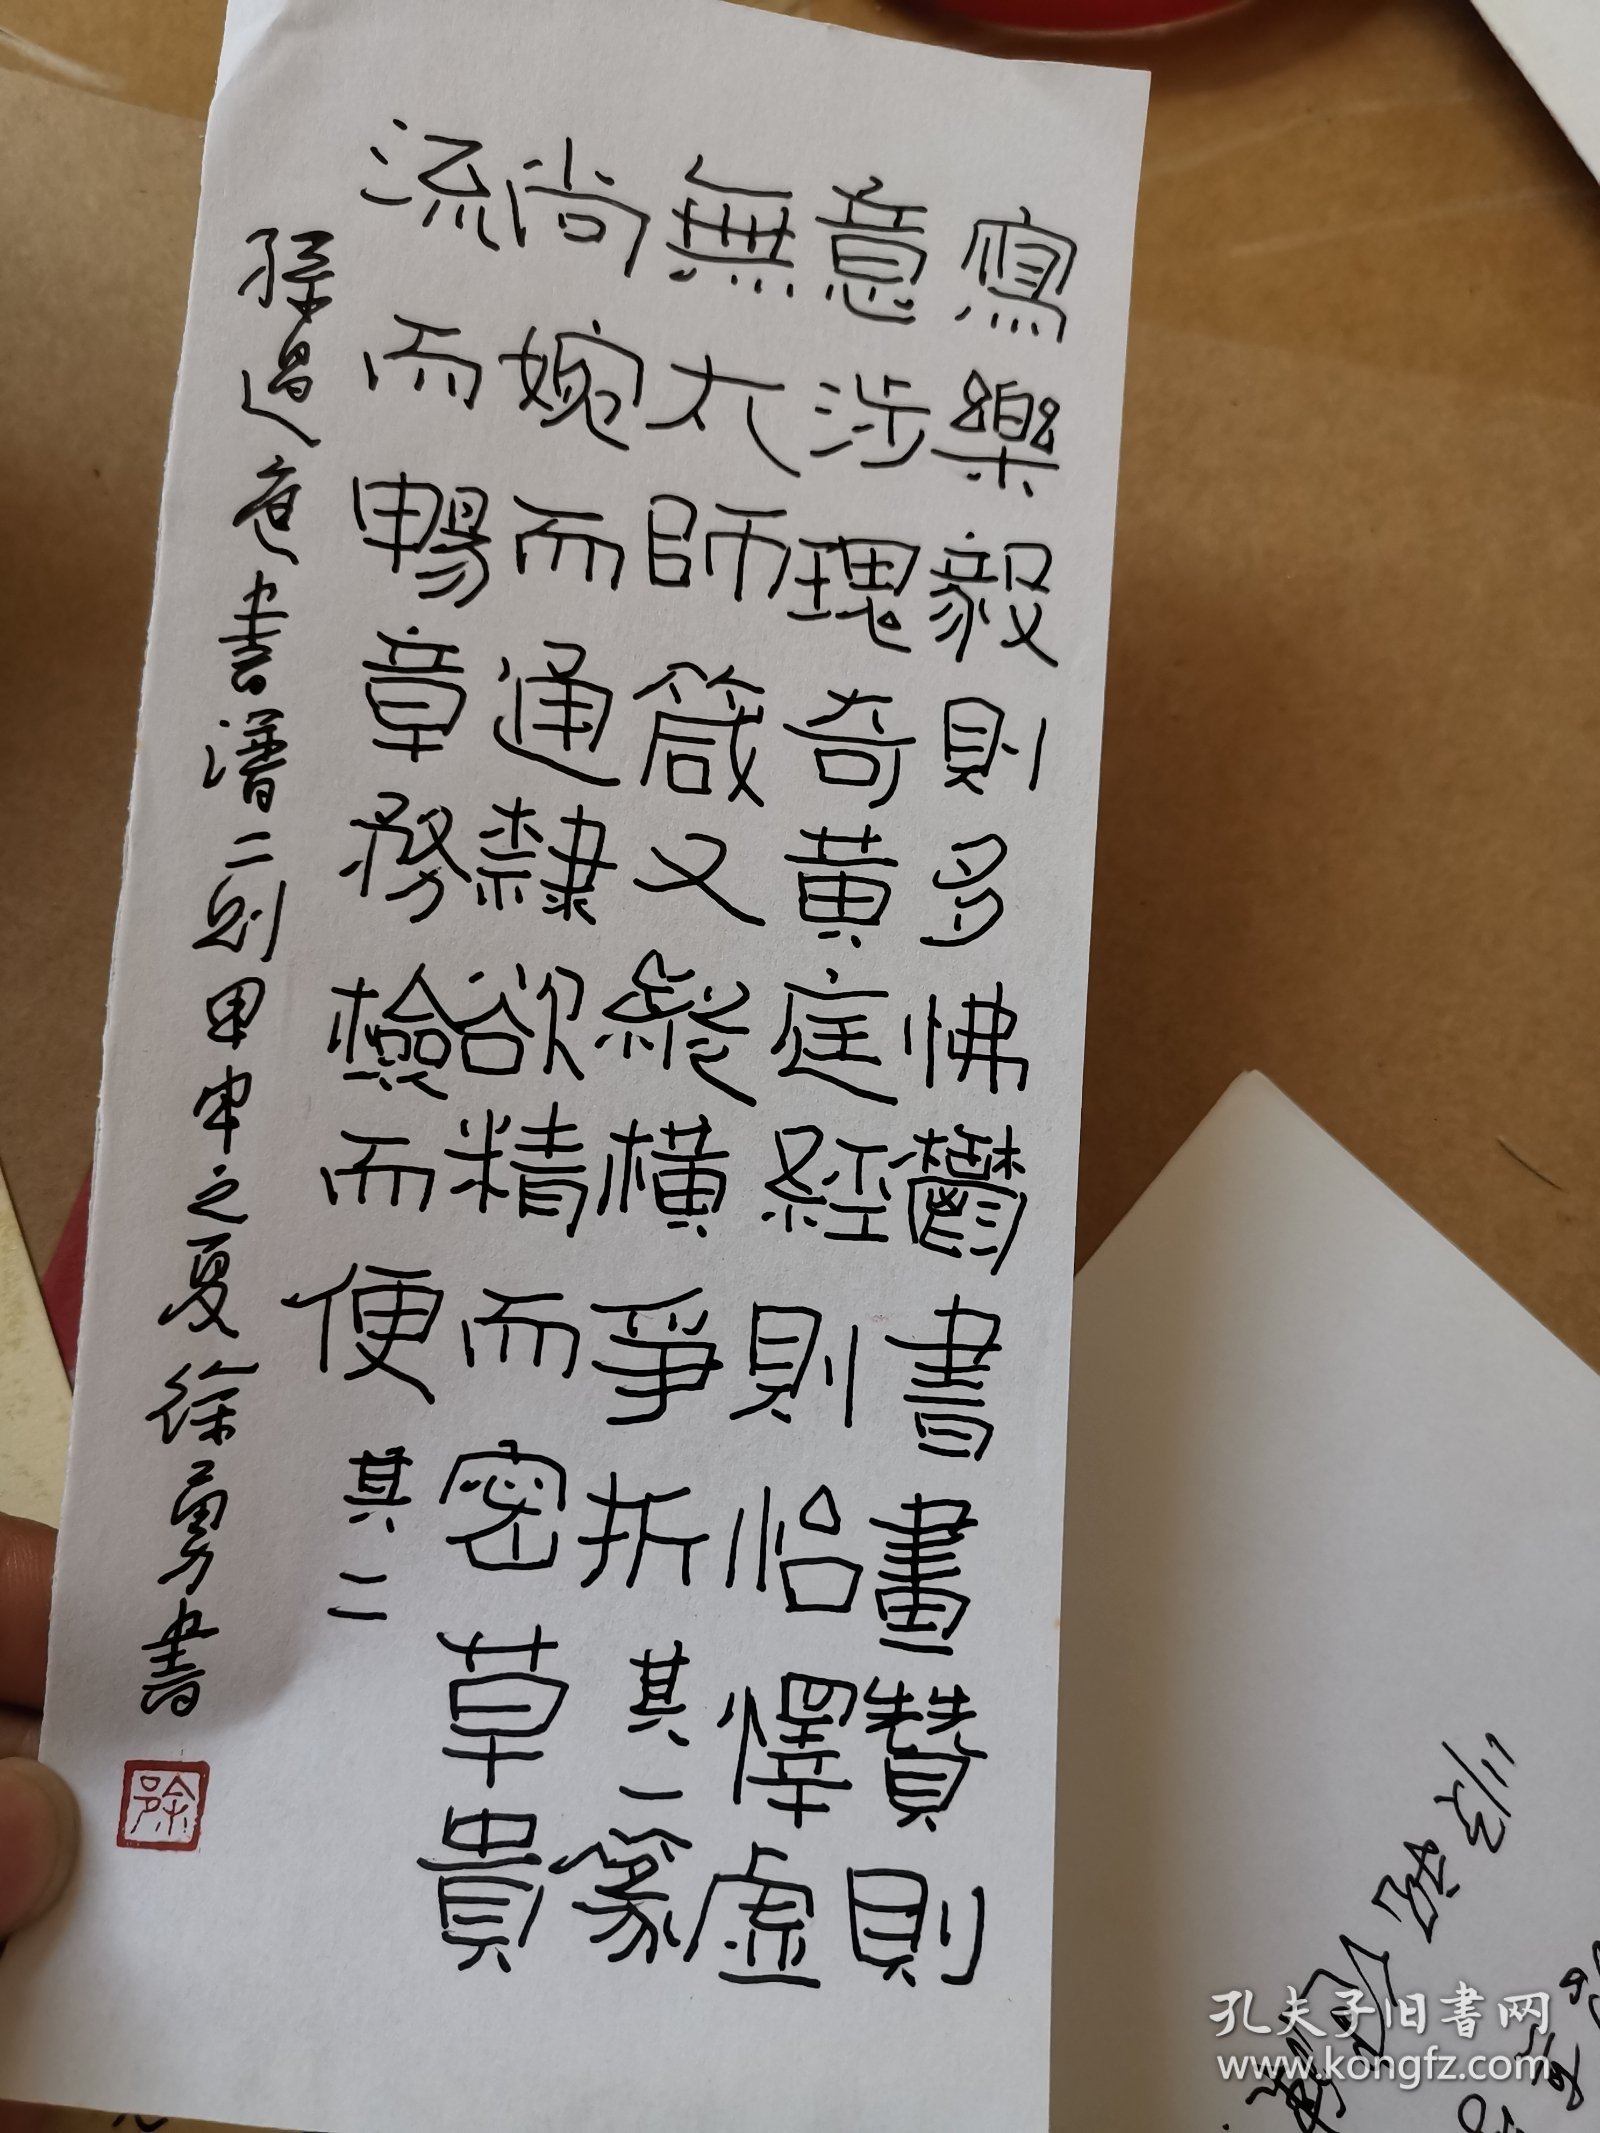 寫樂毅則多怫鬱書畫贊則
意涉瑰奇黃庭經則怡懌虛
無太師箴又縱橫爭折其一篆
尚婉而通隸欲精而密草貴
流而暢章務檢而便其二
孫過庭書譜二則甲申之夏徐勇書
徐
孔夫子旧書网
www.kongfz.com